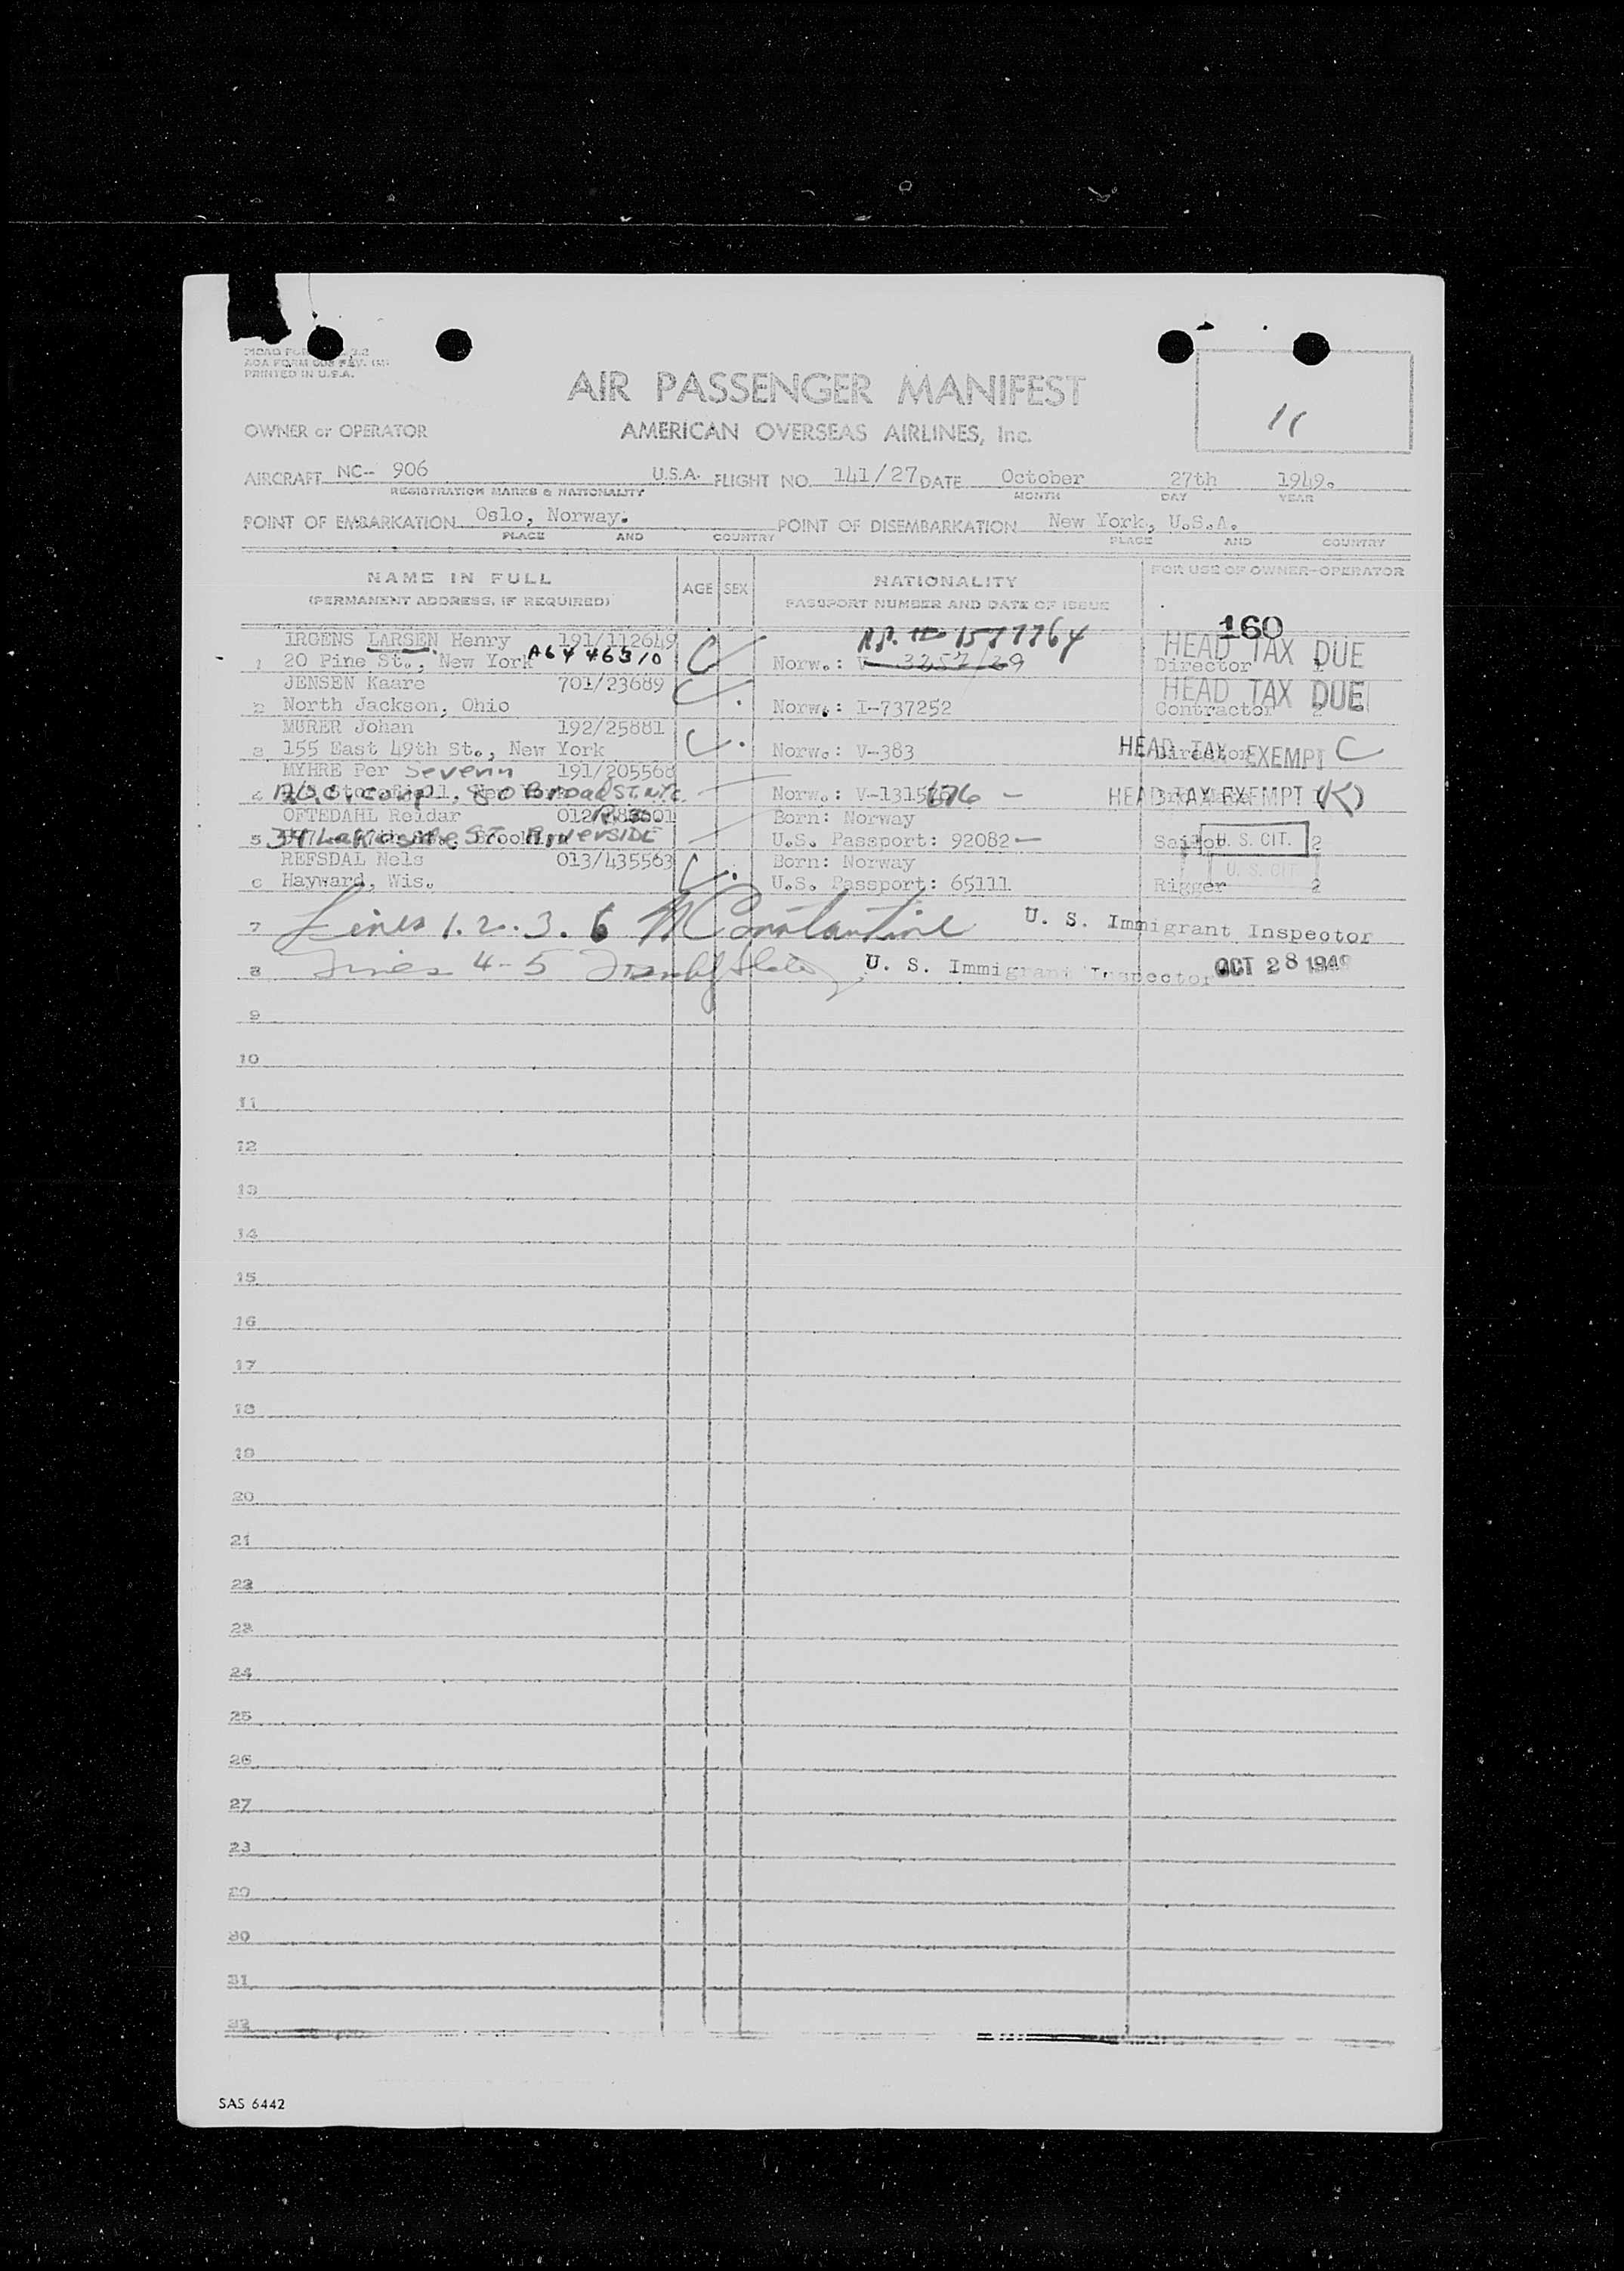 PRINTED IN U.S.A.
AIR PASSENGER MANIFEST
11
OWNER or OPERATOR AMERICAN OVERSEAS AIRLINES, Inc.
AIRCRAFT NC-- 906 U.S.A. FLIGHT NO. 141/27 DATE October 27th 1949.
REGISTRATION MARKS & NATIONALITY MONTH DAY YEAR
POINT OF EMBARKATION Oslo, Norway. POINT OF DISEMBARKATION New York, U.S.A.
PLACE AND COUNTRY PLACE AND COUNTRY
NAME IN FULL AGE SEX NATIONALITY FOR USE OF OWNER-OPERATOR
(PERMANENT ADDRESS, IF REQUIRED) PASSPORT NUMBER AND DATE OF ISSUE
160
IRGENS LARSEN Henry 191/112649 1577764 HEAD TAX DUE
1 20 Pine St., New York A6446310 Norw.: Director 1
JENSEN Kaare 701/23689 HEAD TAX DUE
2 North Jackson, Ohio Norw.: I-737252 Contractor 2
MURER Johan 192/25881
3 155 East 49th St., New York Norw.: V-383 HEAD TAX EXEMPT C Director
MYHRE Per Severin 191/205568
4 80 Broad ST. NYC Norw.: V-1315 676 — HEAD TAX EXEMPT (K)
OFTEDAHL Reidar Born: Norway
5 34 Lakeside ST. RIVERSIDE U.S. Passport: 92082 — Sailor U. S. CIT. 2
REFSDAL Nels 013/435563 Born: Norway U. S. CIT
6 Hayward, Wis. U.S. Passport: 65111 Rigger 2
7 Lines 1. 2. 3. 6 M Constantine U. S. Immigrant Inspector
8 Lines 4-5 U. S. Immigrant Inspector OCT 28 1949
9
10
11
12
13
14
15
16
17
18
19
20
21
22
23
24
25
26
27
28
29
30
31
32
SAS 6442